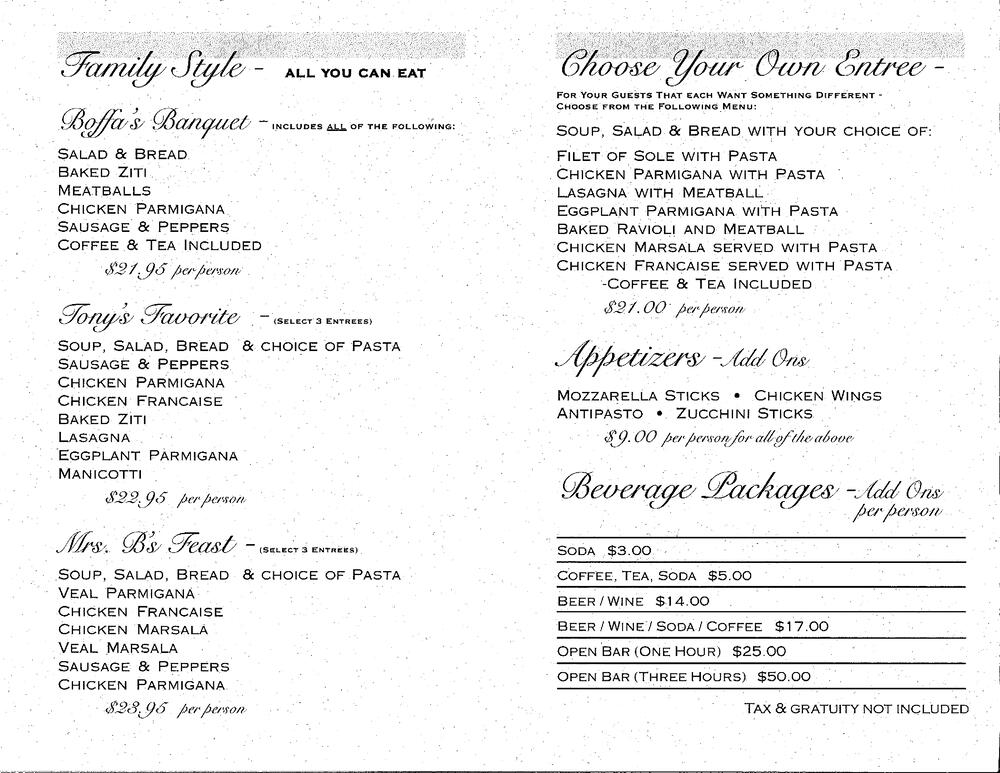 Family Style - ALL YOU CAN EAT
Boffa's Banquet - INCLUDES ALL OF THE FOLLOWING:
SALAD & BREAD
BAKED ZITI
MEATBALLS
CHICKEN PARMIGANA
SAUSAGE & PEPPERS
COFFEE & TEA INCLUDED
$21.95 per person
Tony's Favorite - (SELECT 3 ENTREES)
SOUP, SALAD, BREAD & CHOICE OF PASTA
SAUSAGE & PEPPERS
CHICKEN PARMIGANA
CHICKEN FRANCAISE
BAKED ZITI
LASAGNA
EGGPLANT PARMIGANA
MANICOTTI
$22.95 per person
Mrs. B's Feast - (SELECT 3 ENTREES)
SOUP, SALAD, BREAD & CHOICE OF PASTA
VEAL PARMIGANA
CHICKEN FRANCAISE
CHICKEN MARSALA
VEAL MARSALA
SAUSAGE & PEPPERS
CHICKEN PARMIGANA
$23.95 per person
Choose Your Own Entree -
FOR YOUR GUESTS THAT EACH WANT SOMETHING DIFFERENT -
CHOOSE FROM THE FOLLOWING MENU:
SOUP, SALAD & BREAD WITH YOUR CHOICE OF:
FILET OF SOLE WITH PASTA
CHICKEN PARMIGANA WITH PASTA
LASAGNA WITH MEATBALL
EGGPLANT PARMIGANA WITH PASTA
BAKED RAVIOLI AND MEATBALL
CHICKEN MARSALA SERVED WITH PASTA
CHICKEN FRANCAISE SERVED WITH PASTA
-COFFEE & TEA INCLUDED
$21.00 per person
Appetizers - Add Ons
MOZZARELLA STICKS • CHICKEN WINGS
ANTIPASTO • ZUCCHINI STICKS
$9.00 per person for all of the above
Beverage Packages - Add Ons
per person
SODA $3.00
COFFEE, TEA, SODA $5.00
BEER / WINE $14.00
BEER / WINE / SODA / COFFEE $17.00
OPEN BAR (ONE HOUR) $25.00
OPEN BAR (THREE HOURS) $50.00
TAX & GRATUITY NOT INCLUDED